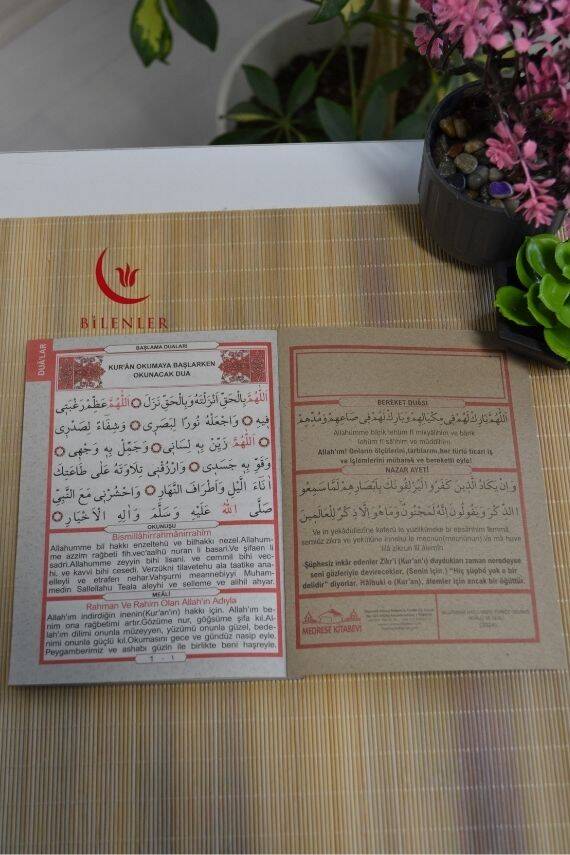 BİLENLER
DUÂ'LAR
BAŞLAMA DUALARI
KUR'ÂN OKUMAYA BAŞLARKEN
OKUNACAK DUA
اَللّٰهُمَّ بِالْحَقِّ اَنْزَلْتَهُ وَبِالْحَقِّ نَزَلَ اَللّٰهُمَّ عَظِّمْ رَغْبَتِى
فِيهِ وَاجْعَلْهُ نُورًا لِبَصَرِى وَشِفَاءً لِصَدْرِى
اَللّٰهُمَّ زَيِّنْ بِهِ لِسَانِى وَجَمِّلْ بِهِ وَجْهِى
وَقَوِّ بِهِ جَسَدِى وَارْزُقْنِى تِلَاوَتَهُ عَلٰى طَاعَتِكَ
اٰنَاءَ الَّيْلِ وَاَطْرَافَ النَّهَارِ وَاحْشُرْنِى مَعَ النَّبِىِّ
صَلَّى اللّٰهُ عَلَيْهِ وَسَلَّمَ وَاٰلِهِ الْاَخْيَارِ
OKUNUŞU
Bismillâhirrahmânirrahîm
Allahumme bil hakkı enzeltehü ve bilhakkı nezel.Allahum-
me azzim rağbeti fih.vec'aalhü nuran li basari.Ve şifaen li
sadri.Allahumme zeyyin bihi lisani, ve cemmil bihi vec-
hi, ve kavvi bihi cesedi. Verzükni tilavetehu ala taatike ana-
elleyli ve etrafen nehar.Vahşurni meannebiyyi Muham-
medin Sallellahu Teala aleyhi ve selleme ve alihil ahyar.
MEÂLİ
Rahman Ve Rahim Olan Allah'ın Adıyla
Allah'ım indirdiğin inenin(Kur'an'ın) hakkı için. Allah'ım be-
nim ona rağbetimi artır.Gözüme nur, göğsüme şifa kıl.Al-
lah'ım dilimi onunla müzeyyen, yüzümü onunla güzel, bede-
nimi onunla güçlü kıl.Okumasını gece ve gündüz nasip eyle.
Peygamberimiz ve ashabı güzin ile birlikte beni haşreyle.
1 - ١
BEREKET DUÂSI
اَللّٰهُمَّ بَارِكْ لَهُمْ فِى مِكْيَالِهِمْ وَبَارِكْ لَهُمْ فِى صَاعِهِمْ وَمُدِّهِمْ
Allahümme bârik lehüm fî mikyâlihim ve bârik
lehüm fî sâihim ve müddihim.
Allah'ım! Onların ölçülerini,tartılarını,her türlü ticari iş
ve işlemlerini mübarek ve bereketli eyle!
NAZAR AYETİ
وَاِنْ يَكَادُ الَّذِينَ كَفَرُوا لَيُزْلِقُونَكَ بِاَبْصَارِهِمْ لَمَّا سَمِعُوا
الذِّكْرَ وَيَقُولُونَ اِنَّهُ لَمَجْنُونٌ وَمَا هُوَ اِلَّا ذِكْرٌ لِلْعَالَمِينَ
Ve in yekâdüllezîne keferû le yüzlikûneke bi ebsârihim lemmâ
semiûz zikra ve yekûlûne innehu le mecnun(mecnunün) Ve mâ huve
illâ zikrun lil âlemîn
Şüphesiz inkâr edenler Zikr'i (Kur'an'ı) duydukları zaman neredeyse
seni gözleriyle devirecekler. (Senin için.) "Hiç şüphe yok o bir
delidir" diyorlar. Hâlbuki o (Kur'an), âlemler için ancak bir öğüttür.
MEDRESE KİTABEVİ